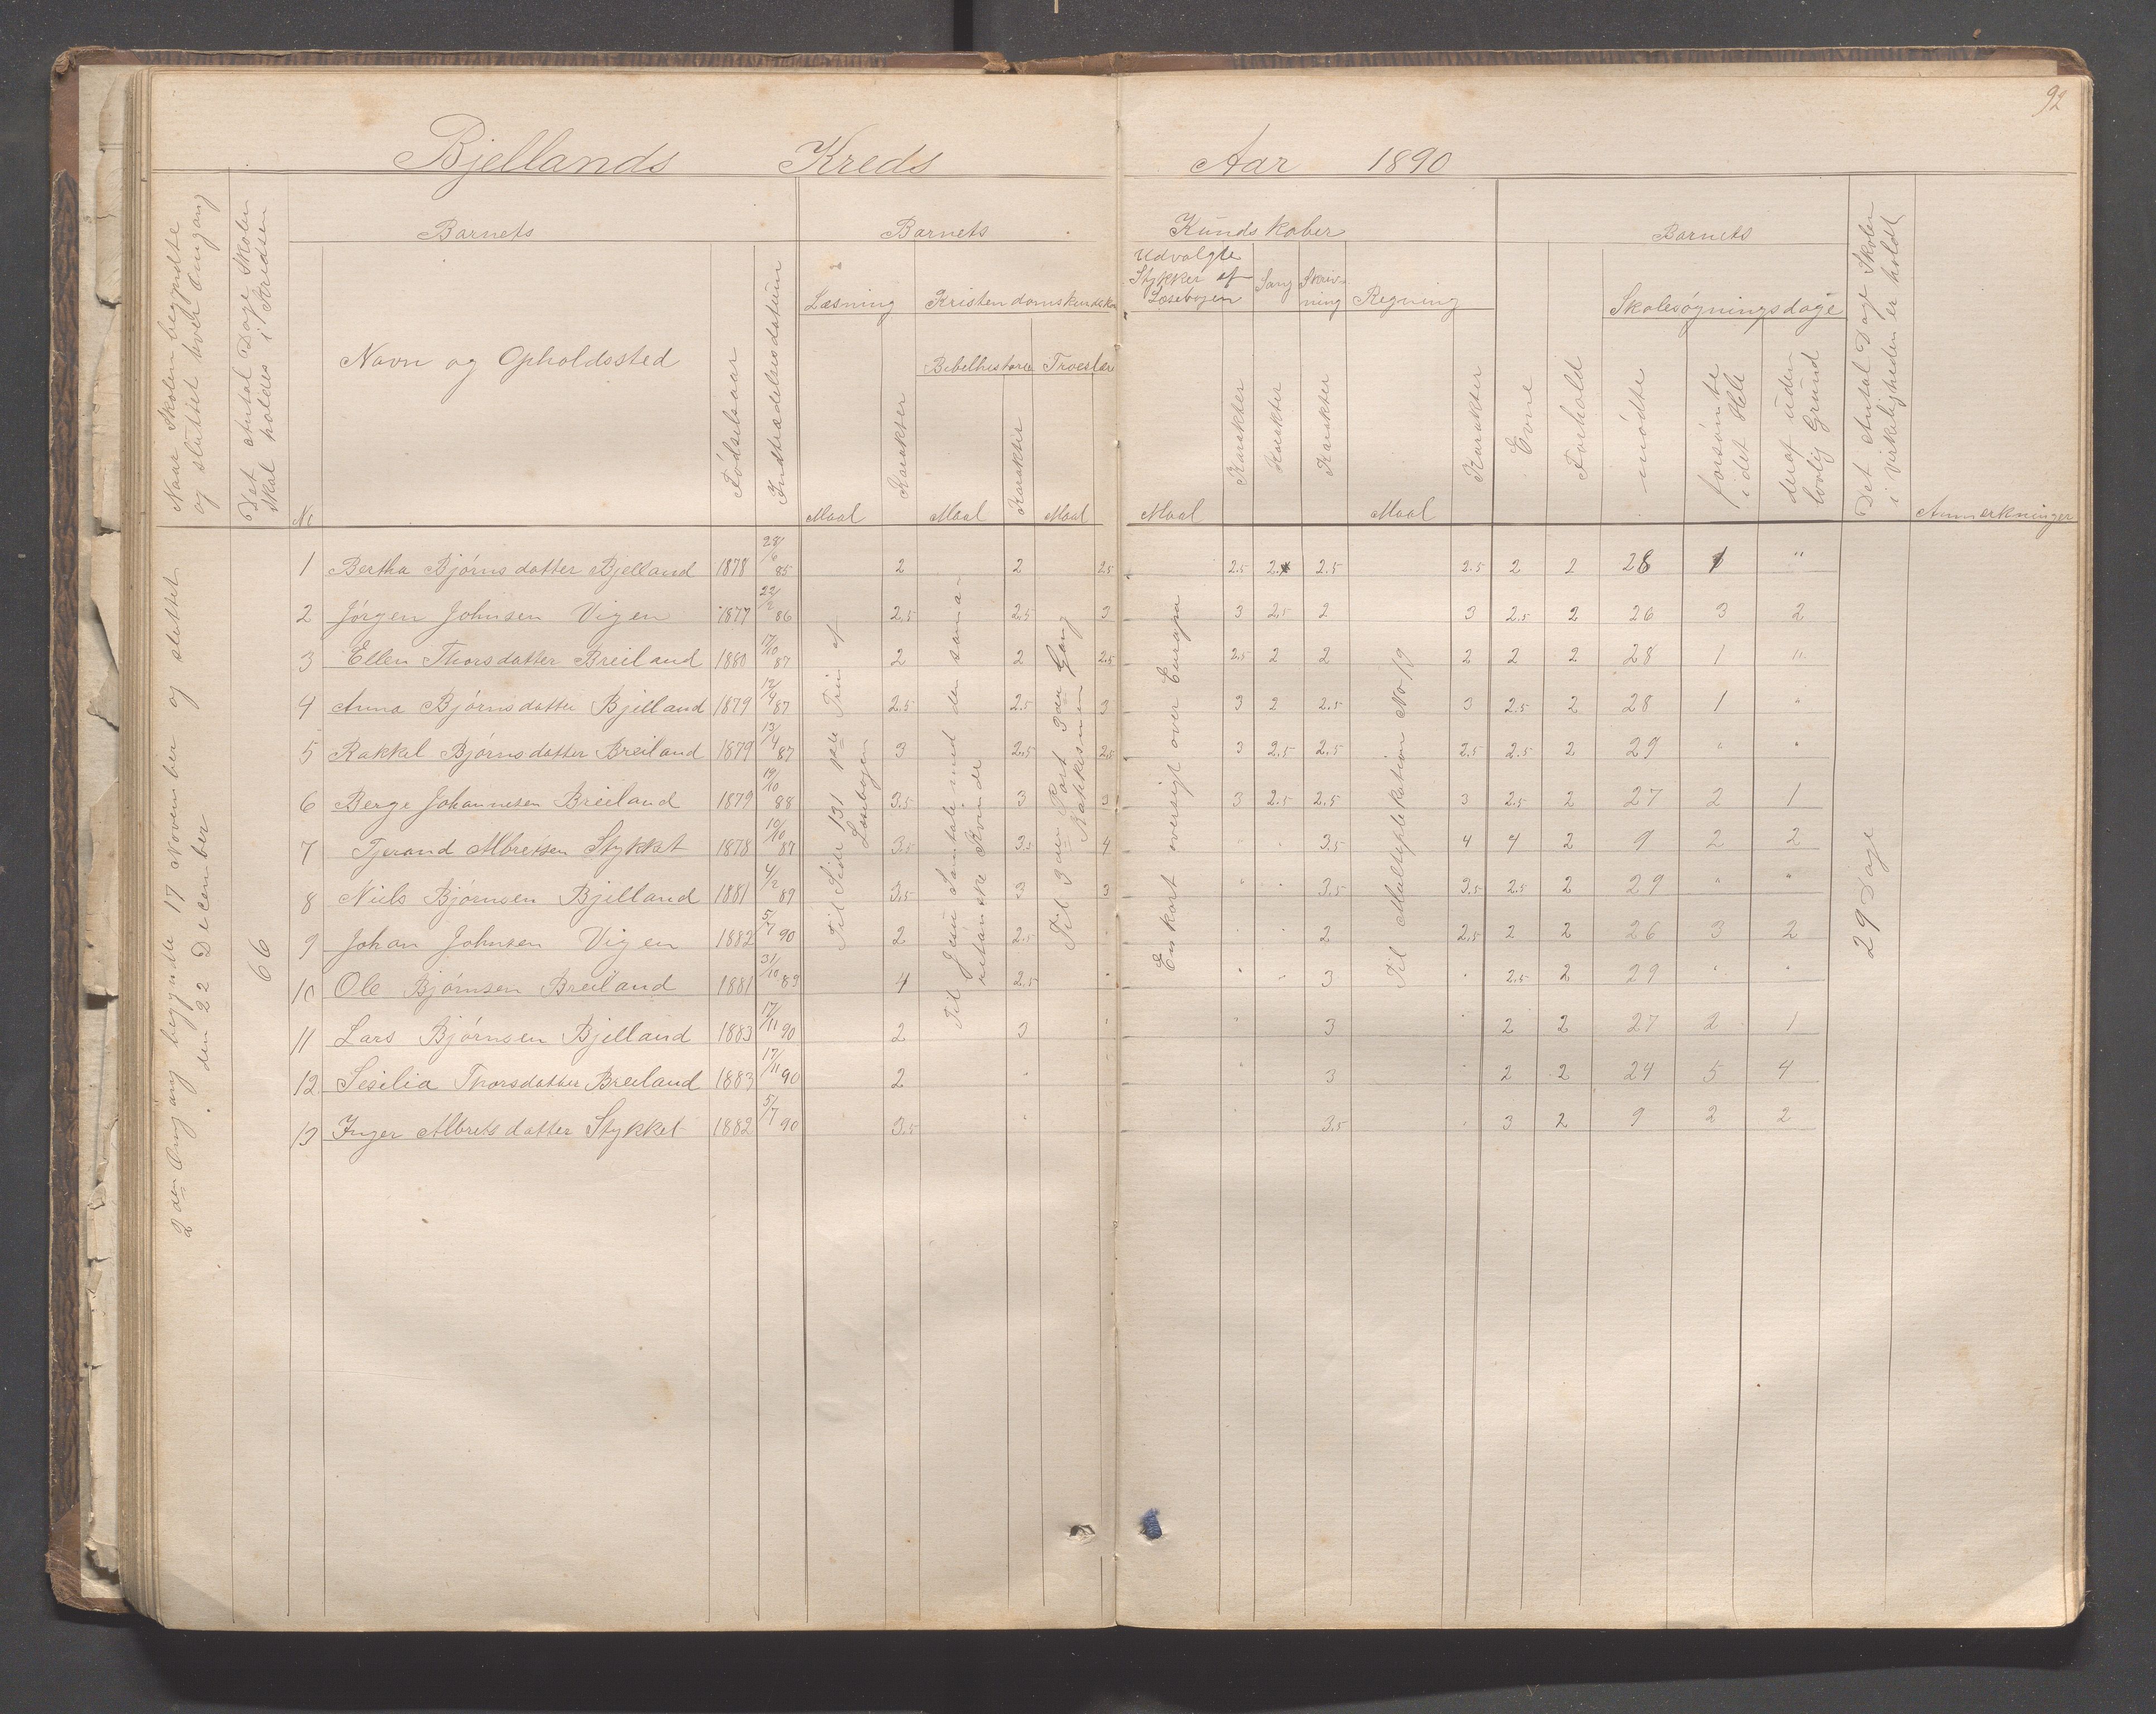 92
Bjellands Kreds Aar 1890
Naar Skolen begyndte
og sluttet hver Omgang
Det Antal Dage Skolen
skal holdes i Kredsen
Barnets
Barnets
Kundskaber
Barnets
Det Antal Dage Skolen
i Virkeligheden er holdt
Læsning
Kristendomskundska
Udvalgte
Stykker af
Læsebogen
Sang
Skriv-
ning
Regning
Skolesøgningsdage
Bibelhistorie
Troeslære
No
Navn og Opholdssted
Fødselsaar
Indtrædelsesdatum
Maal
Karakter
Maal
Karakter
Maal
Maal
Karakter
Karakter
Karakter
Maal
Karakter
Evne
Forhold
mødte
forsømte
i det Hele
deraf uden
lovlig Grund
Anmerkninger
2den Omgang begyndte 17 November og sluttet
den 22 December
66
Til Side 131 Trin af
Læsebogen
Til Jesu Samtale med den sama-
ritanske Kvinde
Til 3die Part 3die Gang
Katekismen
En kort oversigt over Europa
Til Multiplikation No 19
29 Dage
1 Bertha Bjørnsdatter Bjelland 1878 28/6 85 2 2 2.5 2.5 2. 2.5 2.5 2 2 28 1 "
2 Jørgen Johnsen Vigen 1877 22/2 86 2.5 2.5 3 3 2.5 2 3 2.5 2 26 3 2
3 Ellen Thorsdatter Breiland 1880 17/10 87 2 2 2.5 2.5 2 2 2 2 2 28 1 "
4 Anna Bjørnsdatter Bjelland 1879 12/4 87 2.5 2.5 3 3 2 2.5 3 2.5 2 28 1 "
5 Rakkel Bjørnsdatter Breiland 1879 13/4 87 3 2.5 2.5 3 2.5 2.5 2.5 2.5 2 29 " "
6 Berge Johannesen Breiland 1879 19/10 88 3.5 3 3 3 2.5 2.5 3 2.5 2 27 2 1
7 Tjerand Albretsen Stykket 1878 10/10 87 3.5 3.5 4 " " 3.5 4 4 2 9 2 2
8 Niels Bjørnsen Bjelland 1881 4/2 89 3.5 3 3 " " 3.5 3.5 2.5 2 29 " "
9 Johan Johnsen Vigen 1882 5/7 90 2 2.5 " " " 2 2.5 2 2 26 3 2
10 Ole Bjørnsen Breiland 1881 31/10 89 4 2.5 " " " 3 " 2.5 2 29 " "
11 Lars Bjørnsen Bjelland 1883 17/11 90 2 3 " " 3 2 2 27 2 1
12 Sesilia Thorsdatter Breiland 1883 17/11 90 2 " " 3 2 2 24 5 4
13 Inger Albretsdatter Stykket 1882 5/7 90 3.5 " " 3.5 " 3 2 9 2 2